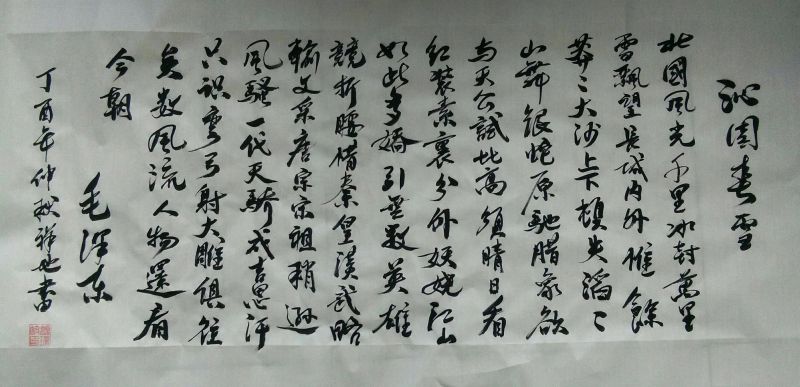 沁園春雪
北國風光千里冰封萬里
雪飄望長城内外惟餘
莽〻大河上下頓失滔〻
山舞銀蛇原馳腊象欲
与天公試比高須晴日看
红装素裹分外妖娆江山
如此多嬌引無數英雄
競折腰惜秦皇漢武略
輸文采唐宗宋祖稍遜
風騷一代天驕成吉思汗
只識彎弓射大雕俱往
矣数風流人物還看
今朝
毛澤东
丁酉年仲秋書